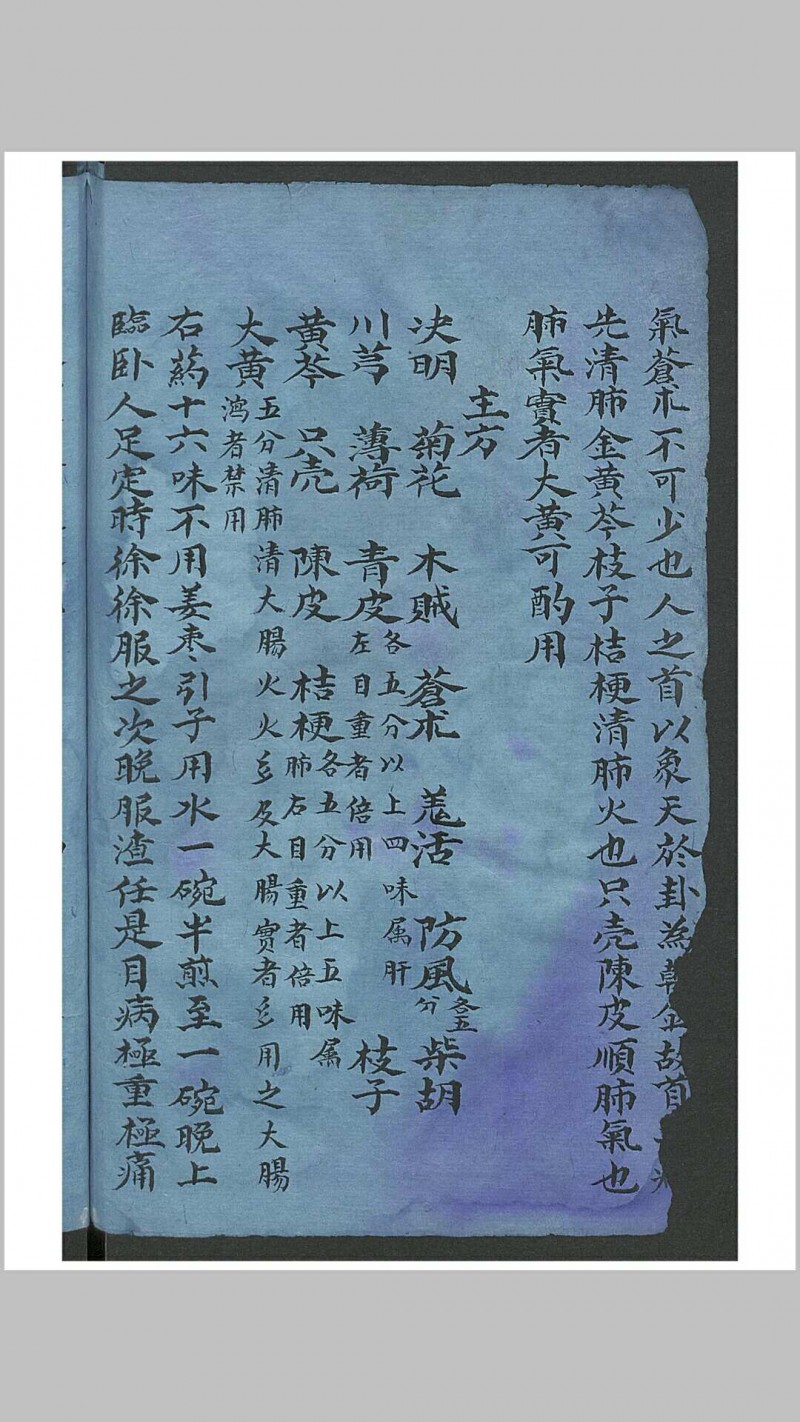 氣蒼朮不可少也人之首以象天於卦為乾金故首
先清肺金黃芩枝子桔梗清肺火也只壳陳皮順肺氣也
肺氣實者大黃可酌用
主方
决明 菊花 木賊 蒼朮 羗活 防風各五分 柴胡
川芎 薄荷 青皮各五分以上四味属肝左目重者倍用 枝子
黃芩 只壳 陳皮 桔梗各五分以上五味属肺右目重者倍用
大黃五分清肺清大腸火火乡及大腸實者乡用之大腸瀉者禁用
右藥十六味不用姜枣引子用水一碗半煎至一碗晚上
臨卧人足定時徐徐服之次晚服渣任是目病極重極痛